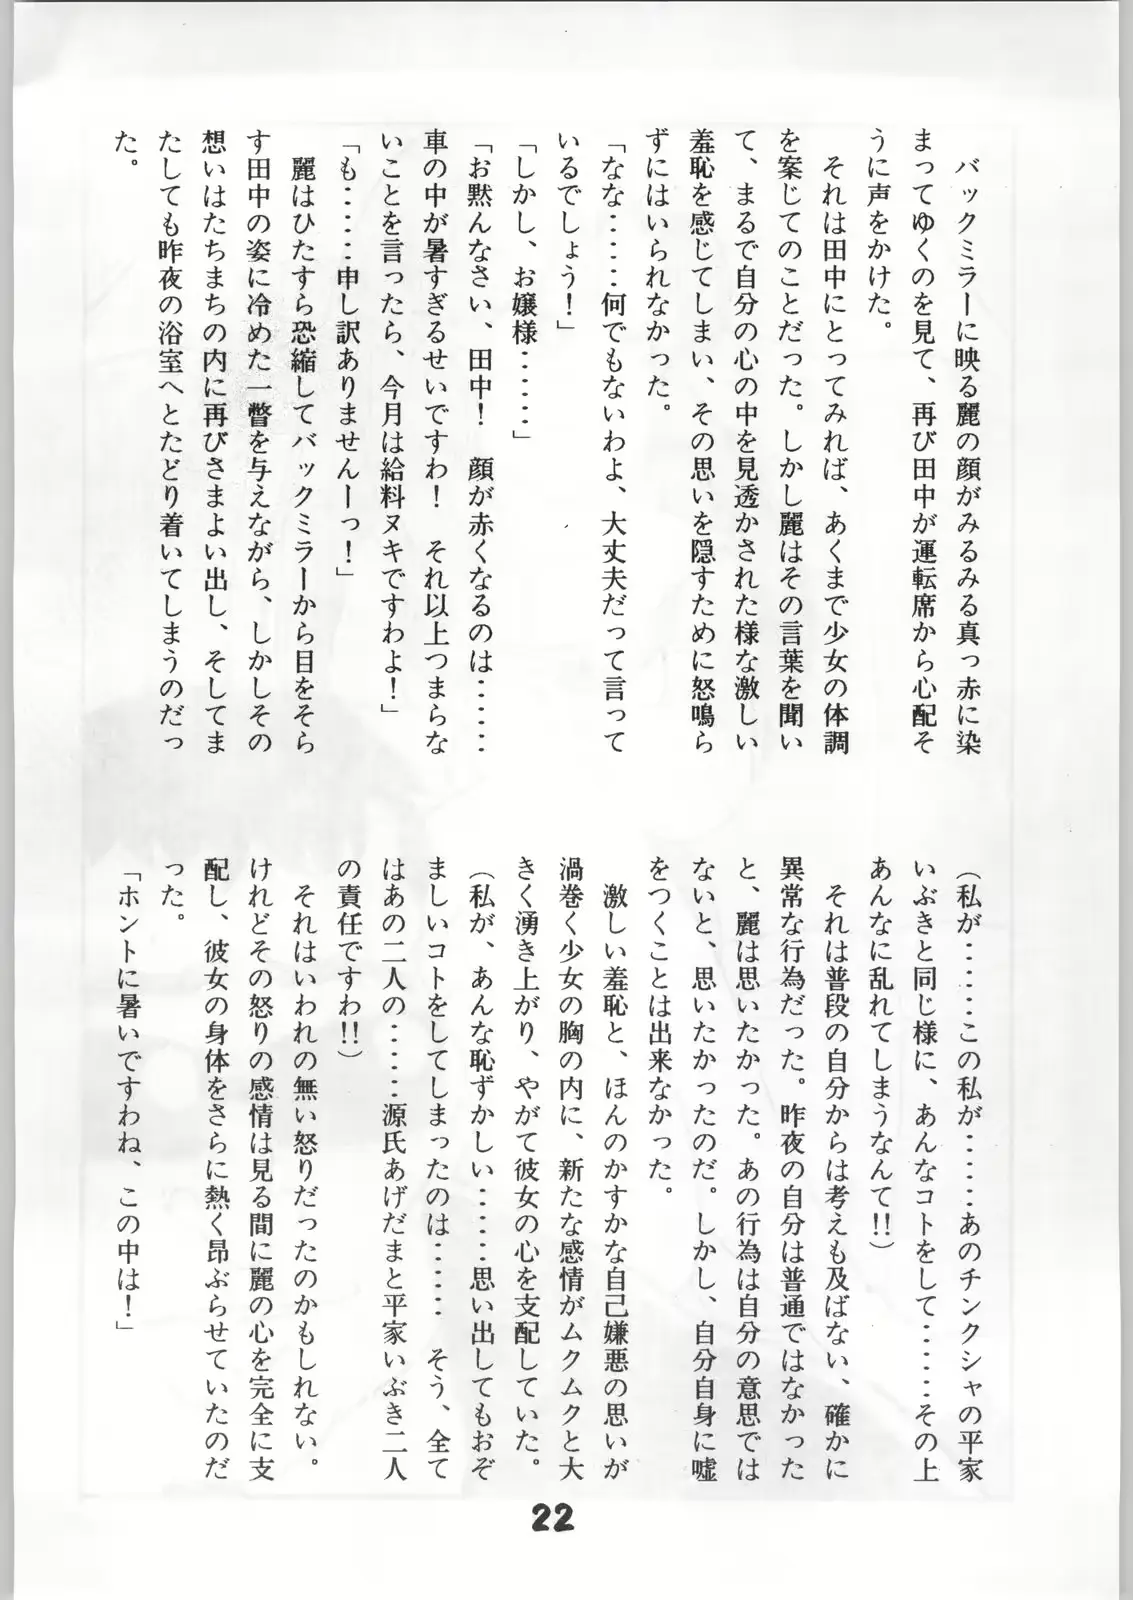 バックミラーに映る麗の顔がみるみる真っ赤に染
まってゆくのを見て、再び田中が運転席から心配そ
うに声をかけた。
　それは田中にとってみれば、あくまで少女の体調
を案じてのことだった。しかし麗はその言葉を聞い
て、まるで自分の心の中を見透かされた様な激しい
羞恥を感じてしまい、その思いを隠すために怒鳴ら
ずにはいられなかった。
「なな‥‥‥何でもないわよ、大丈夫だって言って
いるでしょう！」
「しかし、お嬢様‥‥‥」
「お黙んなさい、田中！　顔が赤くなるのは‥‥‥
車の中が暑すぎるせいですわ！　それ以上つまらな
いことを言ったら、今月は給料ヌキですわよ！」
「も‥‥‥申し訳ありませんーっ！」
　麗はひたすら恐縮してバックミラーから目をそら
す田中の姿に冷めた一瞥を与えながら、しかしその
想いはたちまちの内に再びさまよい出し、そしてま
たしても昨夜の浴室へとたどり着いてしまうのだっ
た。
（私が‥‥‥この私が‥‥‥あのチンクシャの平家
いぶきと同じ様に、あんなコトをして‥‥‥その上
あんなに乱れてしまうなんて!!）
　それは普段の自分からは考えも及ばない、確かに
異常な行為だった。昨夜の自分は普通ではなかった
と、麗は思いたかった。あの行為は自分の意思では
ないと、思いたかったのだ。しかし、自分自身に嘘
をつくことは出来なかった。
　激しい羞恥と、ほんのかすかな自己嫌悪の思いが
渦巻く少女の胸の内に、新たな感情がムクムクと大
きく湧き上がり、やがて彼女の心を支配していた。
（私が、あんな恥ずかしい‥‥‥思い出してもおぞ
ましいコトをしてしまったのは‥‥‥　そう、全て
はあの二人の‥‥‥源氏あげだまと平家いぶき二人
の責任ですわ!!）
　それはいわれの無い怒りだったのかもしれない。
けれどその怒りの感情は見る間に麗の心を完全に支
配し、彼女の身体をさらに熱く昂ぶらせていたのだ
った。
「ホントに暑いですわね、この中は！」
22